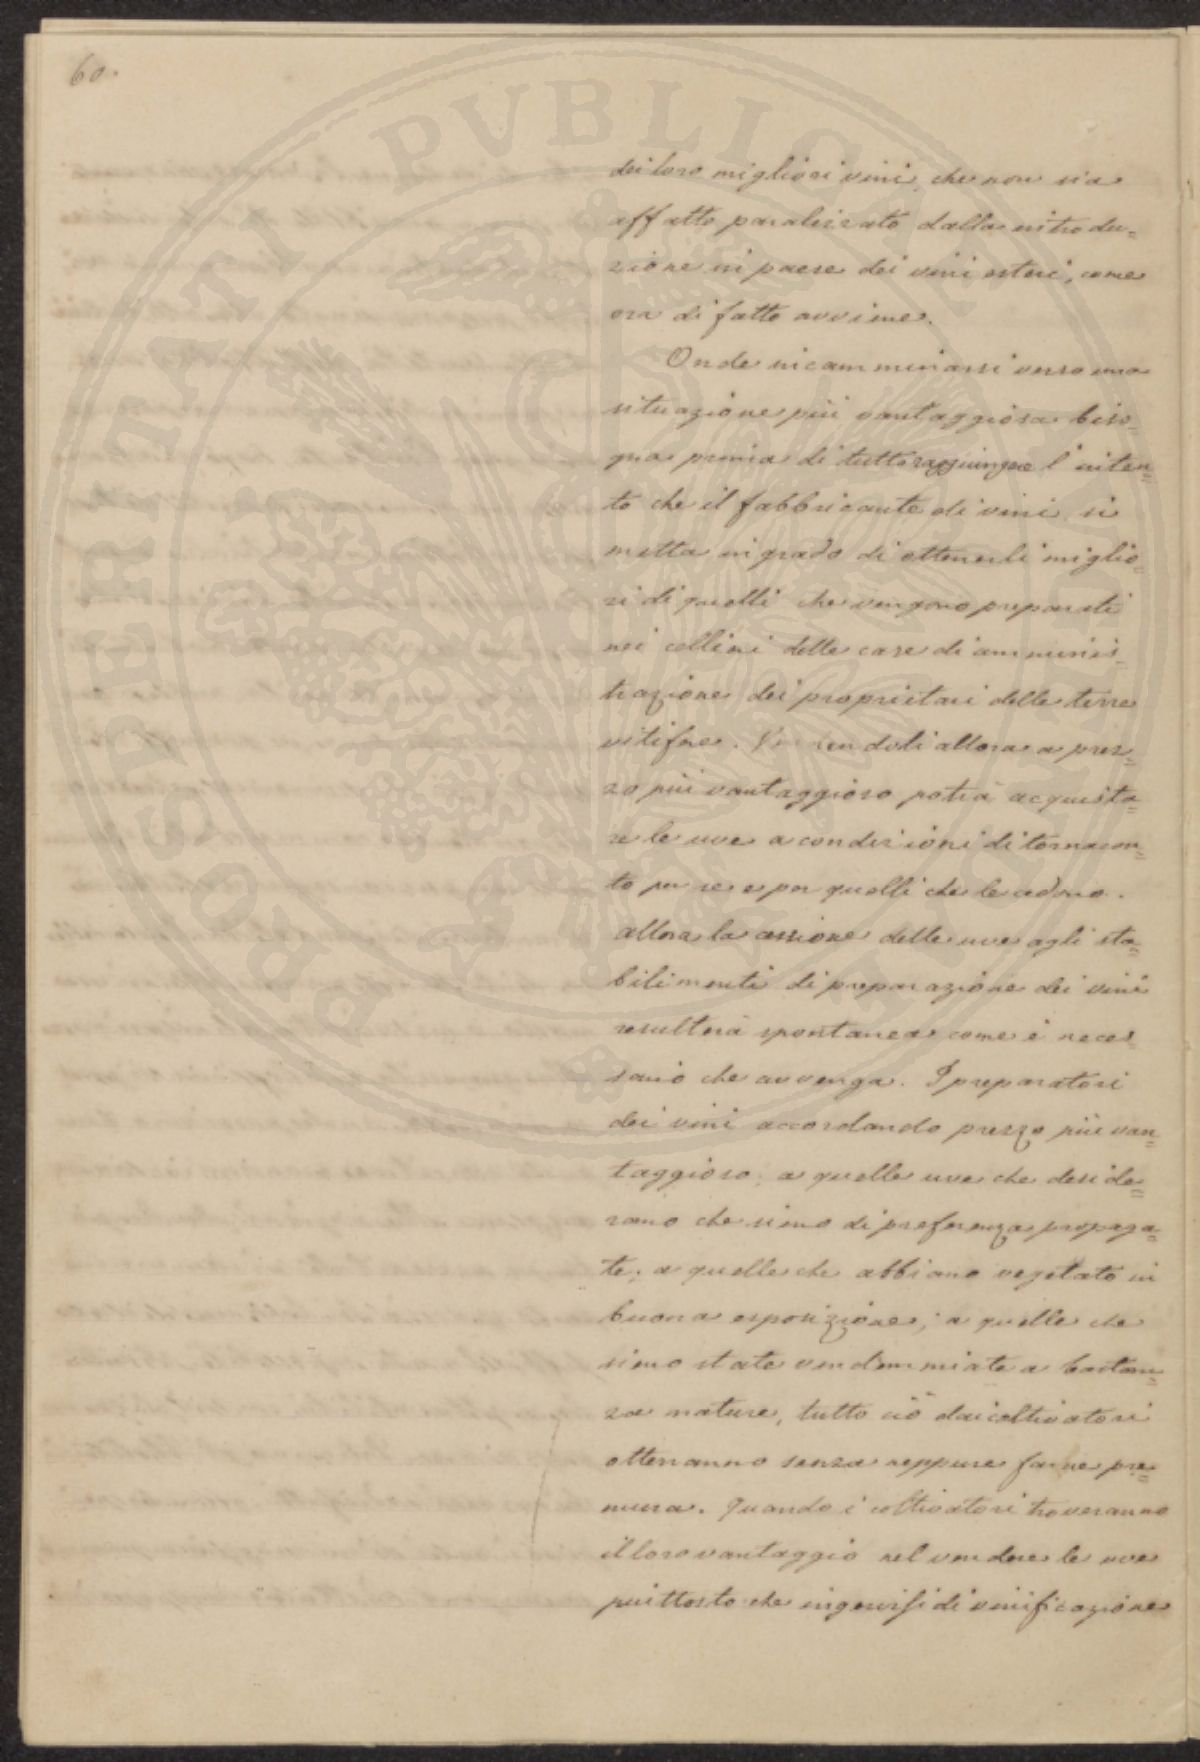 60.
dei loro migliori vini, che non sia
affatto paralizzato dalla introdu=
zione in paese dei vini esteri, come
ora di fatto avviene.
Onde incamminarsi verso una
situazione più vantaggiosa biso=
gna prima di tutto raggiungere l'inten=
to che il fabbricante di vini si
metta in grado di ottenerli miglio=
ri di quelli che vengono preparati
nei cellini delle case di amminis=
trazione dei proprietari delle terre
vitifere. Vendendoli allora a prez=
zo più vantaggioso potrà acquista=
re le uve a condizioni di tornacon=
to per se e per quelli che le cedono.
allora la cessione delle uve agli sta=
bilimenti di preparazione dei vini
resulterà spontanea come è neces=
sario che avvenga. I preparatori
dei vini accordando prezzo più van=
taggioso, a quelle uve che deside=
rano che sieno di preferenza propaga=
te; a quelle che abbiano vegetato in
buona esposizione; a quelle che
sieno state vendemmiate a bastan=
za mature, tutto ciò dai coltivatori
otterranno senza neppure farne pre=
mura. Quando i coltivatori troveranno
il loro vantaggio nel vendere le uve
piuttosto che ingerirsi di vinificazione
PROSPERITATI PUBLICAE